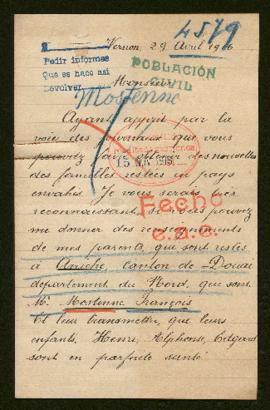 4579
Vernon, 29 Avril 1916
Pedir informes
Que se hace así
Devolver
POBLACIÓN
CIVIL
Monsieur
Mortenne
Ayant appris par la
voie des journaux que vous
pouvez faire obtenir des nouvelles
des familles restées en pays
envahis Je vous serais très
reconnaissant si vous pouvez
me donner des renseignements
de mes parents qui sont restés
à Aniche, canton de Douai
departement du Nord, que sont
Mr Mortenne François
Et leur transmettre que leurs
enfants, Henri, Alphonse, Edgard
sont en parfaite santé
Fecho